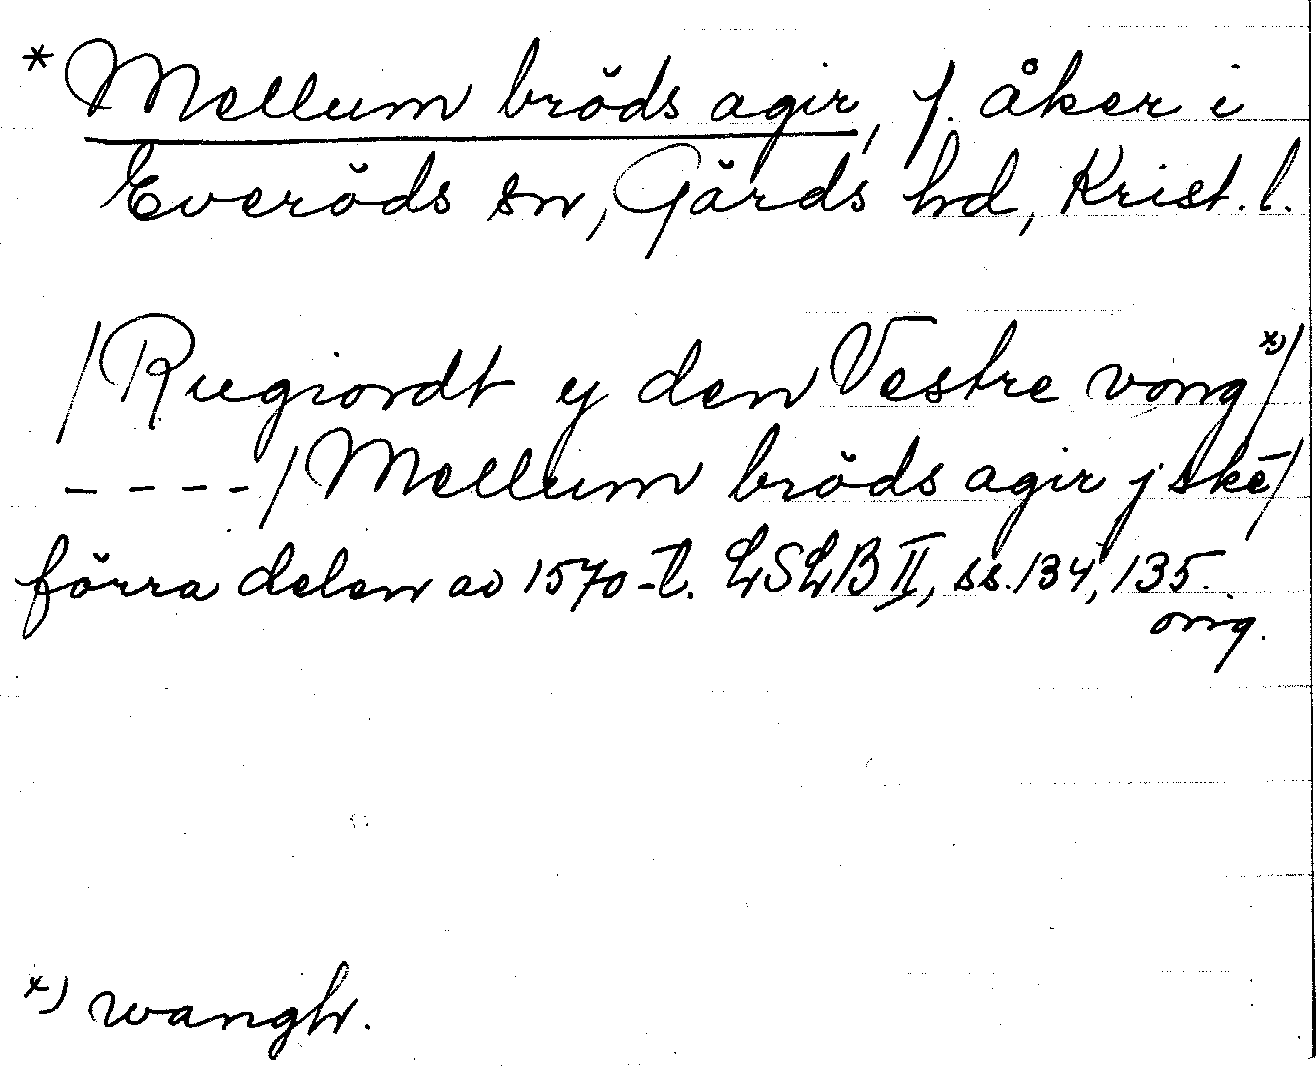 * Mellum bröds agir, f. åker i
Everöds sn, Gärds hd, Krist. l.
/Rugiordt y den Vestre vong x)/
----/Mellum bröds agir j skē/
förra delen av 1570-t. LSLB II, ss. 134, 135.
orig.
x) wangh.